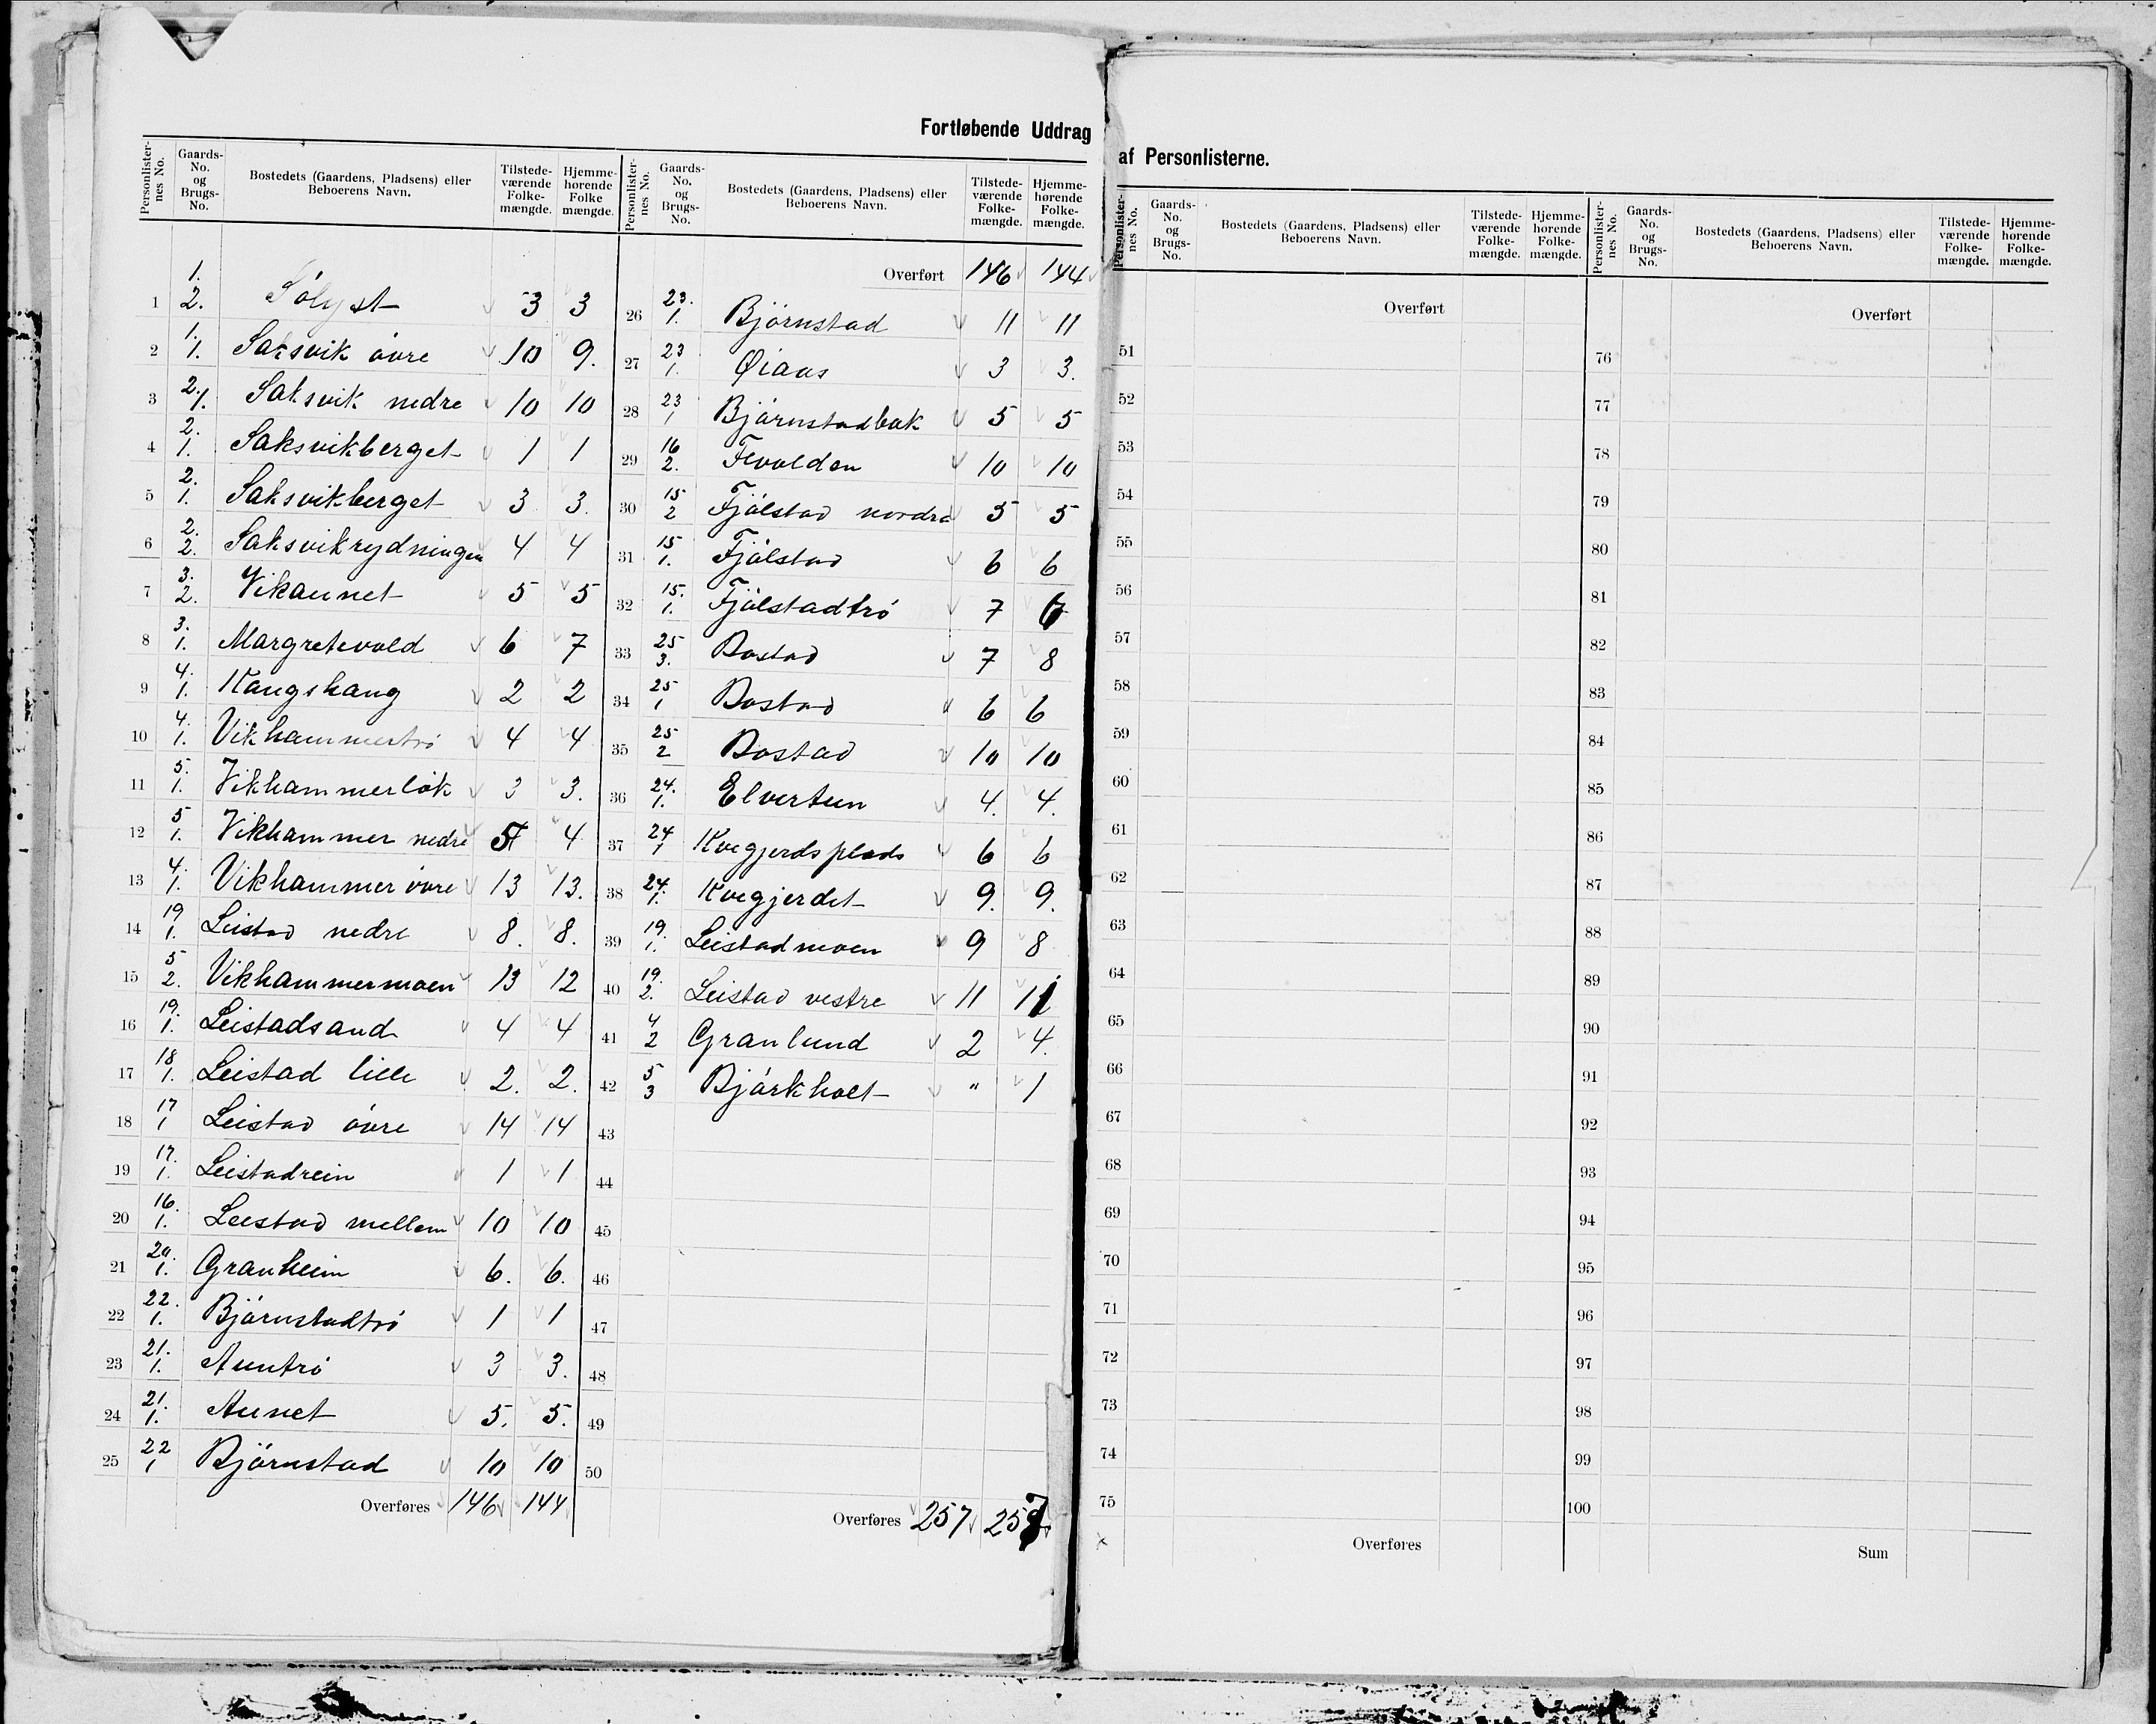 Fortløbende Uddrag af Personlisterne.
Personlister-nes No. Gaards-No. og Brugs-No. Bostedets (Gaardens, Pladsens) eller Beboerens Navn. Tilstede-værende Folke-mængde. Hjemme-hørende Folke mængde.
1 1. 2. Sólyst 3 3
2 1. 1. Saksvik óvre 10 9.
3 2. 1. Saksvik nedre 10 10
4 2. 1. Saksvikberget 1 1
5 2. 1. Saksvikberget 3 3.
6 2. 2. Saksvikrydningen 4 4
7 3. 2. Vikaunet 5 5
8 3. 1. Margretevold 6 7
9 4. 1. Kongshaug 2 2
10 4. 1. Vikhammertró 4 4
11 5. 1. Vikhammerlók 3 3.
12 5 1. Vikhammer nedre 5 4
13 4. 1. Vikhammer óvre 13 13.
14 19 1. Leistad nedre 8. 8.
15 5 2. Vikhammermoen 13 12
16 19. 1. Leistadsand 4 4
17 18 1. Leistad lille 2. 2.
18 17 1 Leistad óvre 14 14
19 17. 1. Leistadrein 1 1
20 16. 1. Leistad mellem 10 10
21 20. 1. Granheim 6. 6.
22 22. 1. Bjórnstadtró 1 1
23 21. 1. Auntró 3 3.
24 21. 1. Aunet 5. 5.
25 22 1 Bjórnstad 10 10
Overføres 146 144
Personlister-nes No. Gaards-No. og Brugs-No. Bostedets (Gaardens, Pladsens) eller Beboerens Navn. Tilstede-værende Folke-mængde. Hjemme-hørende Folke-mængde.
Overført 146 144
26 23. 1. Bjórnstad 11 11
27 23 1. Øiaas 3 3.
28 23 1 Bjórnstadbak 5 5
29 16 2. Flvolden 10 10
30 15 2 Fjólstad nordre 5 5
31 15 1. Fjólstad 6 6
32 15. 1. Fjólstadtró 7
33 25 3. Bostad 7 8
34 25 1 Bostad 6 6
35 25 2 Bostad 10 10
36 24. 1. Elvertun 4. 4.
37 24 1 Kvegjerdsplads 6 6
38 24. 1. Kvegjerdet 9. 9.
39 19. 1. Leistadmoen 9 8
40 19. 2. Leistad vestre 11 11
41 4 2 Granlund 2 4.
42 5 3 Bjórkholt " 1
43
44
45
46
47
48
49
50
Overføres 257 257
Personlister-nes No. Gaards-No. og Brugs-No. Bostedets (Gaardens, Pladsens) eller Beboerens Navn. Tilstede-værende Folke-mængde. Hjemme-hørende Folke-mængde.
Overført
51
52
53
54
55
56
57
58
59
60
61
62
63
64
65
66
67
68
69
70
71
72
73
74
75
Overføres
Personlister-nes No. Gaards-No. og Brugs-No. Bostedets (Gaardens, Pladsens) eller Beboerens Navn. Tilstede-værende Folke-mængde. Hjemme-hørende Folke-mængde.
Overført
76
77
78
79
80
81
82
83
84
85
86
87
88
89
90
91
92
93
94
95
96
97
98
99
100
Sum